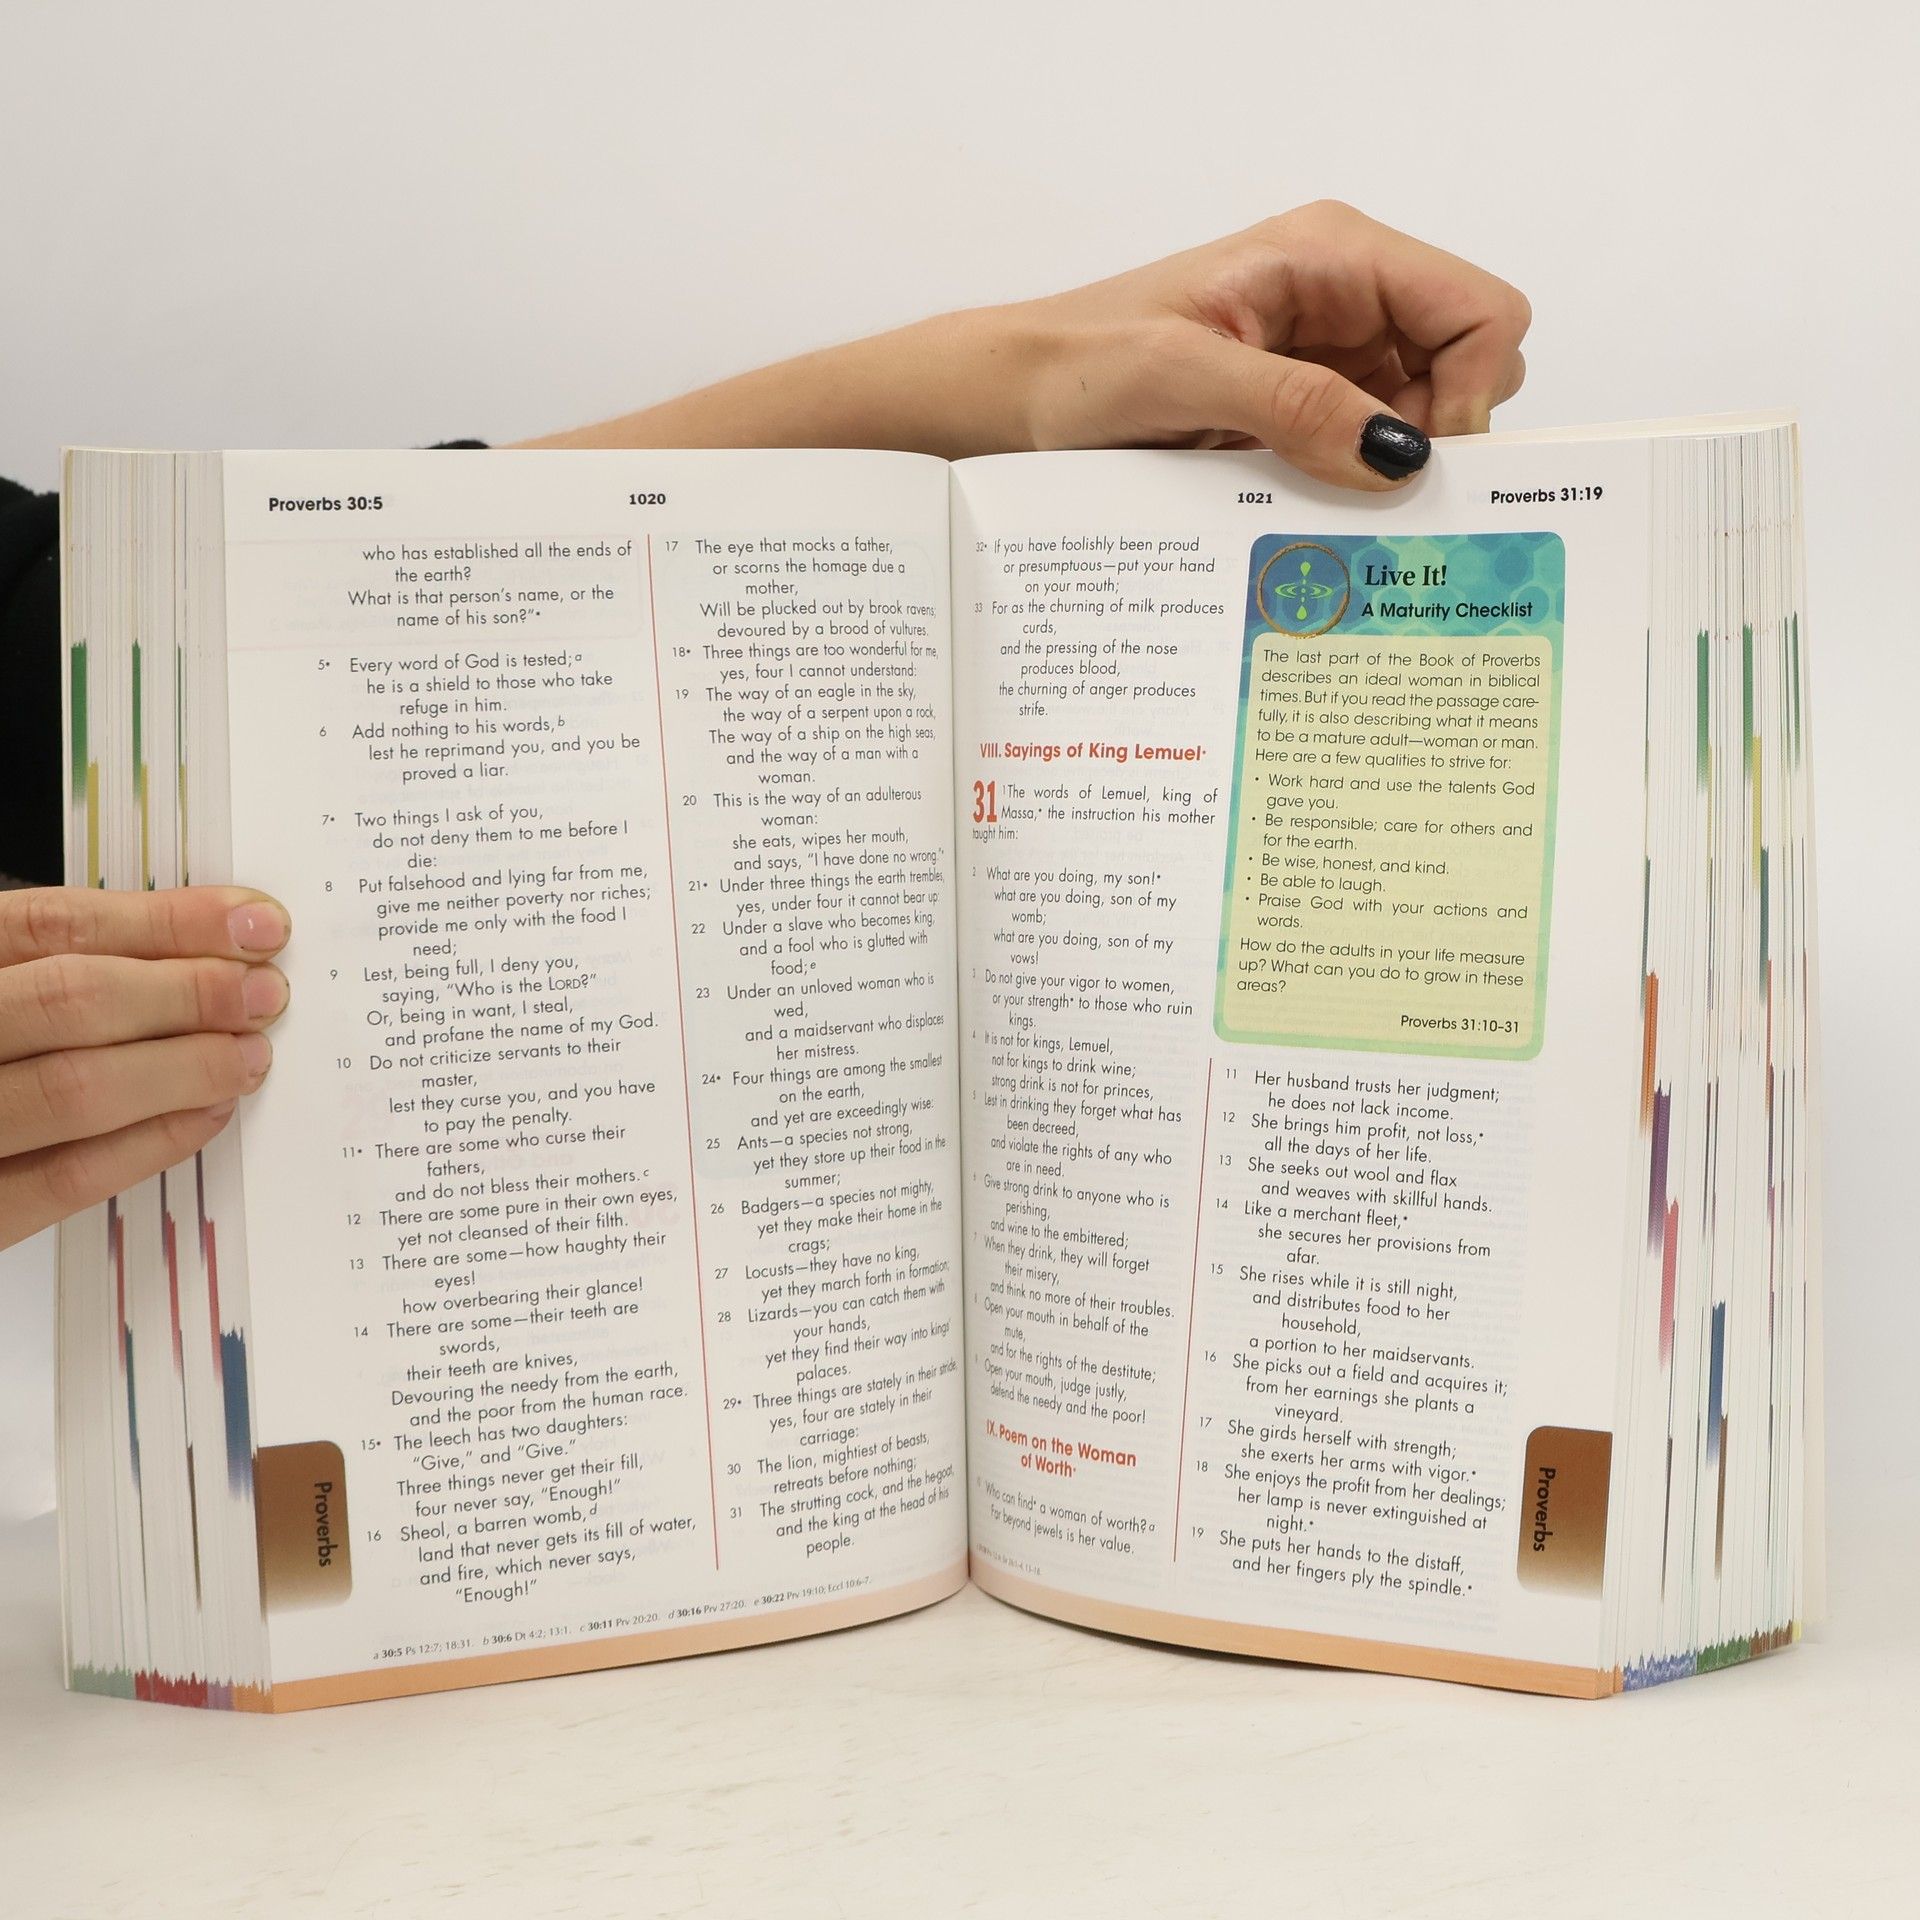 Proverbs 30:5
1020
who has established all the ends of
the earth?
What is that person's name, or the
name of his son?"•
5• Every word of God is tested;a
he is a shield to those who take
refuge in him.
6 Add nothing to his words,b
lest he reprimand you, and you be
proved a liar.
7• Two things I ask of you,
do not deny them to me before I
die:
8 Put falsehood and lying far from me,
give me neither poverty nor riches;
provide me only with the food I
need;
9 Lest, being full, I deny you,
saying, "Who is the LORD?"
Or, being in want, I steal,
and profane the name of my God.
10 Do not criticize servants to their
master,
lest they curse you, and you have
to pay the penalty.
11• There are some who curse their
fathers,
and do not bless their mothers.c
12 There are some pure in their own eyes,
yet not cleansed of their filth.
13 There are some—how haughty their
eyes!
how overbearing their glance!
14 There are some—their teeth are
swords,
their teeth are knives,
Devouring the needy from the earth,
and the poor from the human race.
15• The leech has two daughters:
"Give," and "Give."
Three things never get their fill,
four never say, "Enough!"
16 Sheol, a barren womb,d
land that never gets its fill of water,
and fire, which never says,
"Enough!"
17 The eye that mocks a father,
or scorns the homage due a
mother,
Will be plucked out by brook ravens;
devoured by a brood of vultures.
18• Three things are too wonderful for me,
yes, four I cannot understand:
19 The way of an eagle in the sky,
the way of a serpent upon a rock,
The way of a ship on the high seas,
and the way of a man with a
woman.
20 This is the way of an adulterous
woman:
she eats, wipes her mouth,
and says, "I have done no wrong."•
21• Under three things the earth trembles,
yes, under four it cannot bear up:
22 Under a slave who becomes king,
and a fool who is glutted with
food;e
23 Under an unloved woman who is
wed,
and a maidservant who displaces
her mistress.
24• Four things are among the smallest
on the earth,
and yet are exceedingly wise:
25 Ants—a species not strong,
yet they store up their food in the
summer;
26 Badgers—a species not mighty,
yet they make their home in the
crags;
27 Locusts—they have no king,
yet they march forth in formation;
28 Lizards—you can catch them with
your hands,
yet they find their way into kings'
palaces.
29• Three things are stately in their stride,
yes, four are stately in their
carriage:
30 The lion, mightiest of beasts,
retreats before nothing;
31 The strutting cock, and the he-goat,
and the king at the head of his
people.
a 30:5 Ps 12:7; 18:31. b 30:6 Dt 4:2; 13:1. c 30:11 Prv 20:20. d 30:16 Prv 27:20. e 30:22 Prv 19:10; Eccl 10:6-7.
Proverbs
1021
Proverbs 31:19
32• If you have foolishly been proud
or presumptuous—put your hand
on your mouth;
33 For as the churning of milk produces
curds,
and the pressing of the nose
produces blood,
the churning of anger produces
strife.
VIII. Sayings of King Lemuel•
31 1The words of Lemuel, king of
Massa,• the instruction his mother
taught him:
2 What are you doing, my son!•
what are you doing, son of my
womb;
what are you doing, son of my
vows!
3 Do not give your vigor to women,
or your strength• to those who ruin
kings.
4 It is not for kings, Lemuel,
not for kings to drink wine;
strong drink is not for princes,
5 Lest in drinking they forget what has
been decreed,
and violate the rights of any who
are in need.
6 Give strong drink to anyone who is
perishing,
and wine to the embittered;
7 When they drink, they will forget
their misery,
and think no more of their troubles.
8 Open your mouth in behalf of the
mute,
and for the rights of the destitute;
9 Open your mouth, judge justly,
defend the needy and the poor!
IX. Poem on the Woman
of Worth•
10 Who can find• a woman of worth?a
Far beyond jewels is her value.
Live It!
A Maturity Checklist
The last part of the Book of Proverbs
describes an ideal woman in biblical
times. But if you read the passage care-
fully, it is also describing what it means
to be a mature adult—woman or man.
Here are a few qualities to strive for:
• Work hard and use the talents God
gave you.
• Be responsible; care for others and
for the earth.
• Be wise, honest, and kind.
• Be able to laugh.
• Praise God with your actions and
words.
How do the adults in your life measure
up? What can you do to grow in these
areas?
Proverbs 31:10–31
11 Her husband trusts her judgment;
he does not lack income.
12 She brings him profit, not loss,•
all the days of her life.
13 She seeks out wool and flax
and weaves with skillful hands.
14 Like a merchant fleet,•
she secures her provisions from
afar.
15 She rises while it is still night,
and distributes food to her
household,
a portion to her maidservants.
16 She picks out a field and acquires it;
from her earnings she plants a
vineyard.
17 She girds herself with strength;
she exerts her arms with vigor.•
18 She enjoys the profit from her dealings;
her lamp is never extinguished at
night.•
19 She puts her hands to the distaff,
and her fingers ply the spindle.•
Proverbs